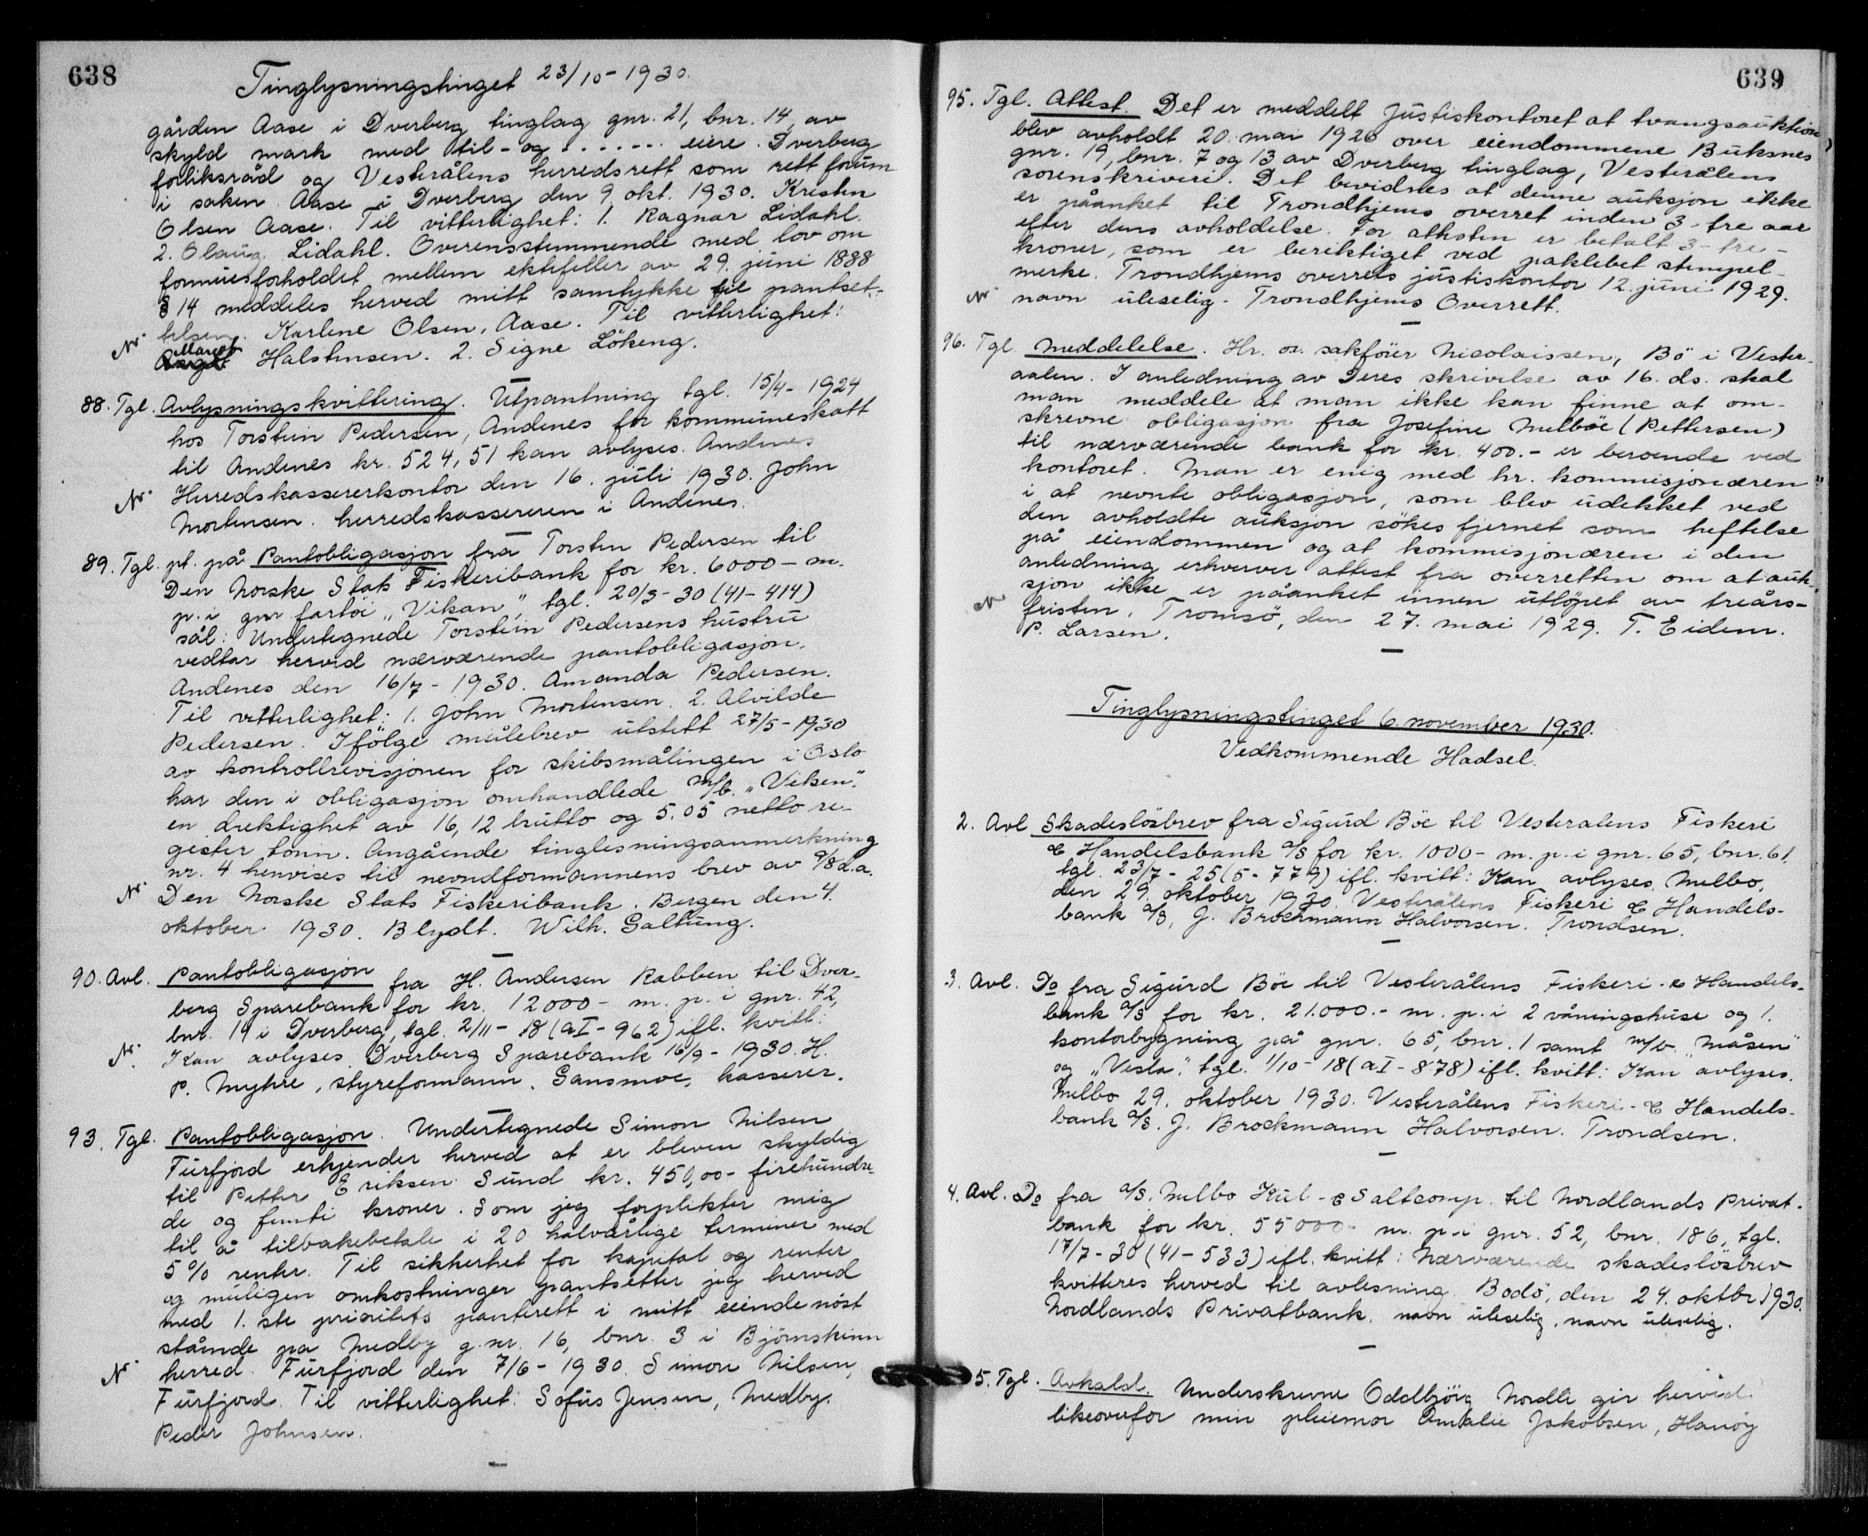 638
Tinglysningstinget 23/10-1930.
gården Aase i Dverberg tinglag gnr. 21, bnr. 14, av
skyld mark med til- og ....... eiere. Dverberg
forliksråd og Vesterålens herredsrett som rett forum
i saken. Aase i Dverberg den 9. okt. 1930. Kristen
Olsen Aase. Til vitterlighet: 1. Ragnar Lidahl.
2. Olaug Lidahl. Overensstemmende med lov om
formuesforholdet mellem ektefeller av 29. juni 1888
§ 14 meddeles herved mitt samtykke til pantset-
telsen. Karlene Olsen, Aase. Til vitterlighet:
Margot Halstensen. 2. Signe Lökeng.
88. Tgl. Avlysningskvittering. Utpantning tgl. 15/4-1924
hos Torstein Pedersen, Andenes for kommuneskatt
til Andenes kr. 524,51 kan avlyses. Andenes
Herredskassererkontor den 16. juli 1930. John
Mortensen. herredskassereren i Andenes.
89. Tgl. pt. på Pantobligasjon fra Torstein Pedersen til
Den Norske Stats Fiskeribank for kr. 6000- m.
p. i gnr fartöi "Vikan", tgl. 20/3-30 (41-414)
sål: Undertegnede Torstein Pedersens hustru
vedtar herved nærværende pantobligasjon.
Andenes den 16/7-1930. Amanda Pedersen.
Til vitterlighet: 1. John Mortensen. 2. Alvilde
Pedersen. Ifölge målebrev utstett 27/5-1930
av kontrollrevisjonen for skibsmålingen i Oslo
har den i obligasjon omhandlede m/b. "Viken".
en drektighet av 16,12 brutto og 5.05 netto re-
gister tonn. Angående tinglesningsanmerkning
nr. 4 henvises til nevndformannens brev av 9/8 d.a.
Nr. Den Norske Stats Fiskeribank. Bergen den 4.
oktober 1930. Blydt. Wilh. Galtung.
90. Avl. Pantobligasjon fra H. Andersen Rabben til Dver-
berg Sparebank for kr. 12000- m. p. i gnr. 42,
bnr. 19 i Dverberg, tgl. 2/11-18 (aI-962) ifl. kvitt:
Kan avlyses. Dverberg Sparebank 16/9-1930. H.
P. Myhre, styreformann. Gansmoe, kasserer.
93. Tgl. Pantobligasjon. Undertegnede Simon Nilsen
Furfjord erkjender herved at er bleven skyldig
til Petter Eriksen Sund kr. 450,00- firehundre-
de og femti kroner. Som jeg forplikter mig
til å tilbakebetale i 20 halvårlige terminer med
5% renter. Til sikkerhet for kapital og renter
og muligen omkostninger pantsetter jeg herved
med 1. ste prioritets panterett i mitt eiende nöst
stående pa Medby g.nr. 16, bnr. 3 i Björnskinn
herred. Furfjord den 7/6-1930. Simon Nilsen,
Furfjord. Til vitterlighet: Sofus Jensen, Medby.
Peder Johnsen.
639
95. Tgl. Attest. Det er meddelt Justiskontoret at tvangsauktion
blev avholdt 20. mai 1926 over eiendommene Buksnes
gnr. 19, bnr. 7 og 13 av Dverberg tinglag, Vesterålens
sorenskriveri. Det bevidnes at denne auksjon ikke
er påanket til Trondhjems overret inden 3-tre aar
efter dens avholdelse. For attesten er betalt 3-tre-
kroner, som er beriktiget ved paklebet stempel-
merke. Trondhjems overrets justiskontor 12. juni 1929.
navn uleselig. Trondhjems Overrett.
96. Tgl Meddelelse. Hr. o.r. sakförer Nicolaissen, Bö i Vester-
aalen. I anledning av Deres skrivelse av 16. ds. skal
man meddele at man ikke kan finne at om-
skrevne obligasjon fra Josefine Melböe (Pettersen)
til nærværende bank for kr. 400.- er beroende ved
kontoret. Man er enig med hr. kommisjonæren
i at nevnte obligasjon, som blev udekket ved
den avholdte auksjon sökes fjernet som heftelse
på eiendommen og at kommisjonæren i den
anledning erhverver attest fra overretten om at auk-
sjon ikke er påanket innen utlöpet av treårs-
fristen. Tromsö, den 27. mai 1929. T. Eidem.
P. Larsen.
Tinglysningstinget 6 november 1930.
Vedkommende Hadsel.
2. Avl Skadeslösbrev fra Sigurd Böe til Vesteralens Fiskeri
& Handelsbank a/s for kr. 1000- m. p. i gnr. 65, bnr. 61.
tgl. 23/7-25 (5-779) ifl. kvitt: Kan avlyses. Melbo,
den 29. oktober 1930. Vesterålens Fiskeri & Handels-
bank a/s, J. Brockmann Halvorsen. Trondsen.
3. Avl. Do fra Sigurd Böe til Vesterålens Fiskeri- & Handels-
bank a/s for kr. 21.000.- m. p. i 2 våningshuse og 1.
kontorbygning på gnr. 65, bnr. 1 samt m/b. "Måsen"
og "Vesla", tgl. 1/10-18 (aI-878) ifl. kvitt: Kan avlyses.
Melbo 29. oktober 1930. Vesterålens Fiskeri- & Handels-
bank a/s. J. Brockmann Halvorsen. Trondsen.
4. Avl. Do fra a/s. Melbo Kul- & Saltcomp. til Nordlands Privat-
bank for kr. 55000- m. p. i gnr. 52, bnr. 186, tgl.
17/7-30 (41-533) ifl. kvitt: Nærværende skadeslösbrev
kvitteres herved til avlesning. Bodö, den 24. oktbr 1930.
Nordlands Privatbank. navn uleselig. navn uleselig.
5. Tgl. Avkald. Underskrevne Oddbjörg Nordli gir herved
likeoverfor min pleiemor Amalie Jakobsen, Hanöy